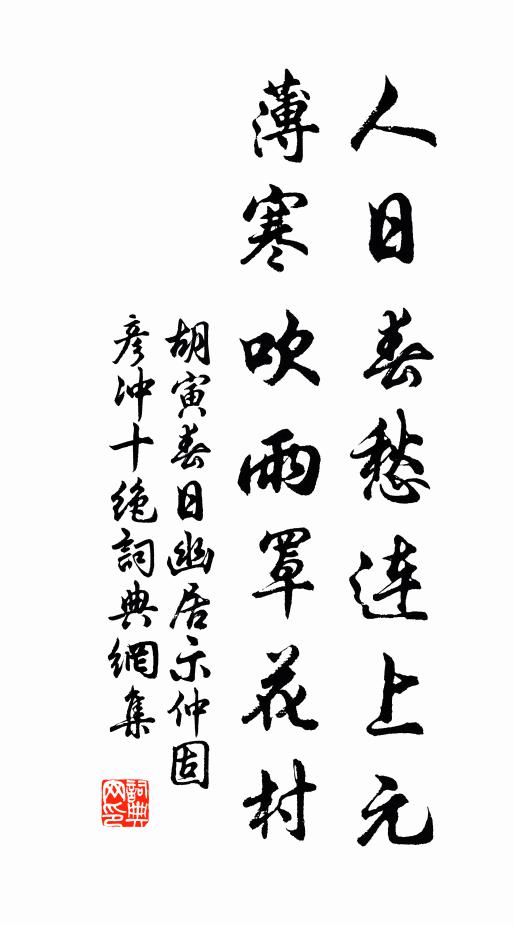 人日春愁連上元
薄寒吹雨罩花村
胡寅春日幽居示仲固
彥冲十絶詞典網集
詞典網印